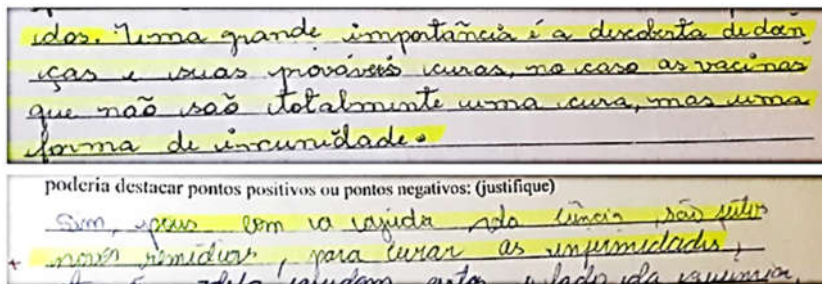 idos. Uma grande importância é a descoberta de doen
ças e suas prováveis curas, no caso as vacinas
que não são totalmente uma cura, mas uma
forma de incunidade.
poderia destacar pontos positivos ou pontos negativos: (justifique)
Sim, pois com a ajuda da ciência, são feitos
novos remédios, para curar as infermidades,
ajudam outro lado da